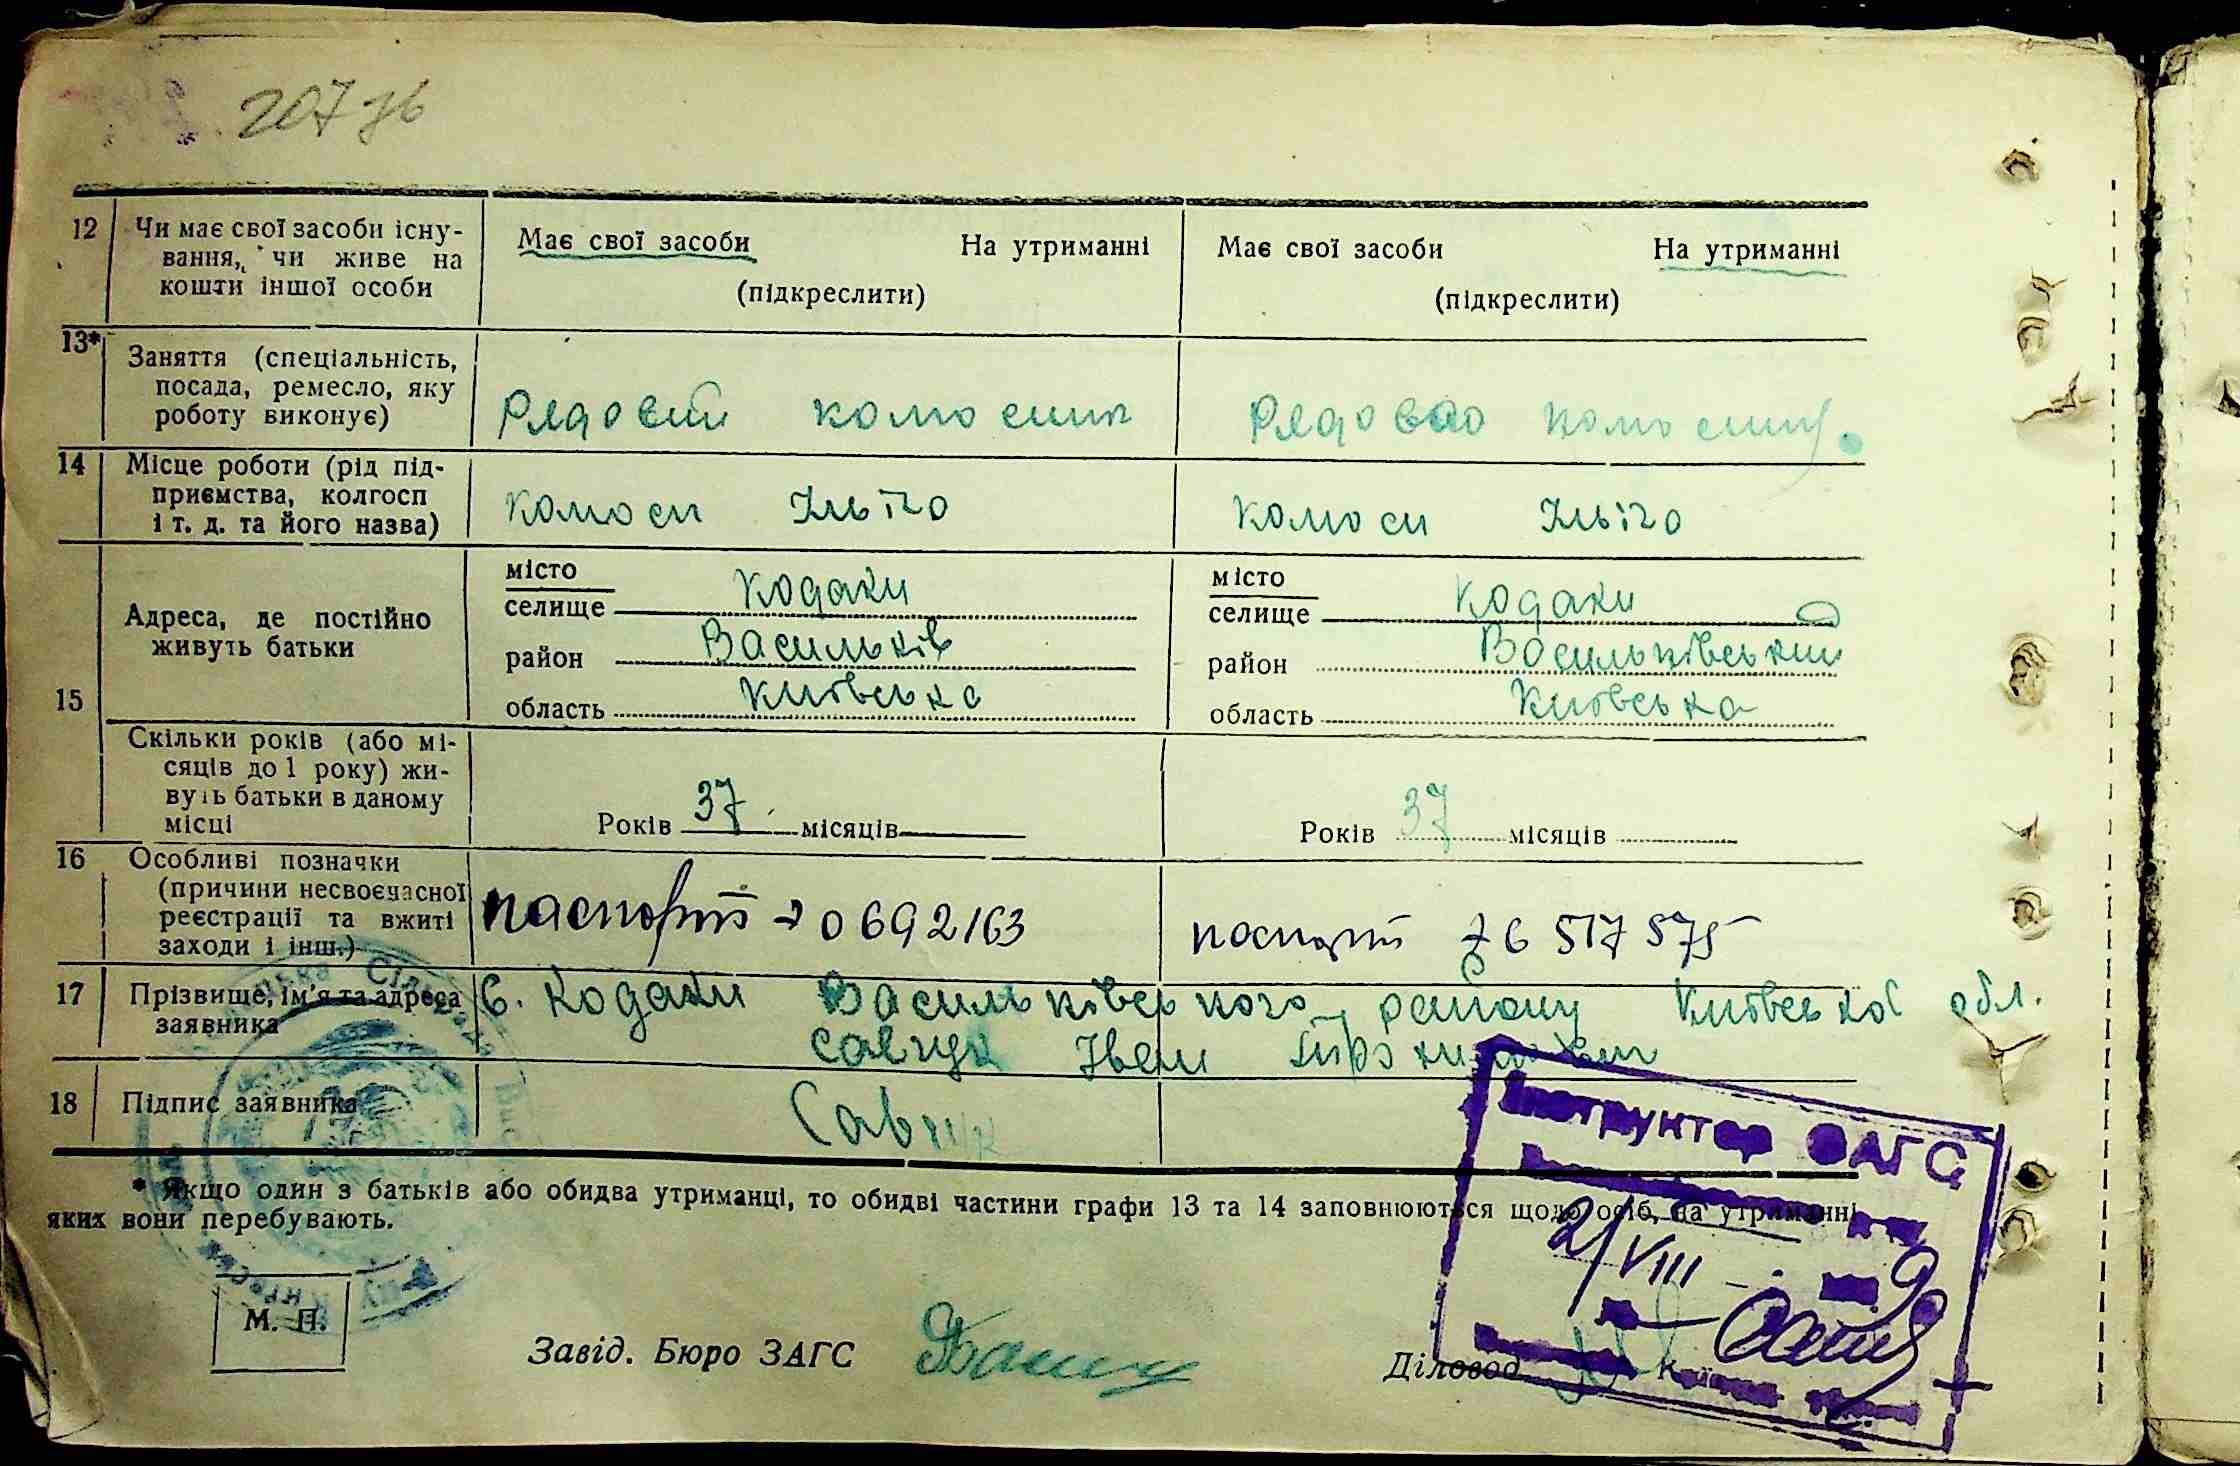 207 зв
12 Чи має свої засоби існу-
вання, чи живе на
кошти іншої особи
Має свої засоби На утриманні
(підкреслити)
Має свої засоби На утриманні
(підкреслити)
13* Заняття (спеціальність,
посада, ремесло, яку
роботу виконує)
Рядовий
14 Місце роботи (рід під-
приємства, колгосп
і т. д. та його назва)
Ілліча
Ілліча
15 Адреса, де постійно
живуть батьки
місто
селище Кодаки
район Васильків
область Київська
місто
селище Кодаки
район Васильківський
область Київська
Скільки років (або мі-
сяців до 1 року) жи-
вуть батьки в даному
місці
Років 37 місяців
Років 37 місяців
16 Особливі позначки
(причини несвоєчасної
реєстрації та вжиті
заходи і інш.)
паспорт 0692163
паспорт 517575
17 Прізвище, ім'я та адреса
заявника
с. Кодаки Васильківського району Київської обл.
Савчук Іван
18 Підпис заявника
Савчук
* Якщо один з батьків або обидва утриманці, то обидві частини графи 13 та 14 заповнюються щодо осіб, на утриманні
яких вони перебувають.
М. П.
Завід. Бюро ЗАГС
Діловод
Інструктор ЗАГС
2/VIII